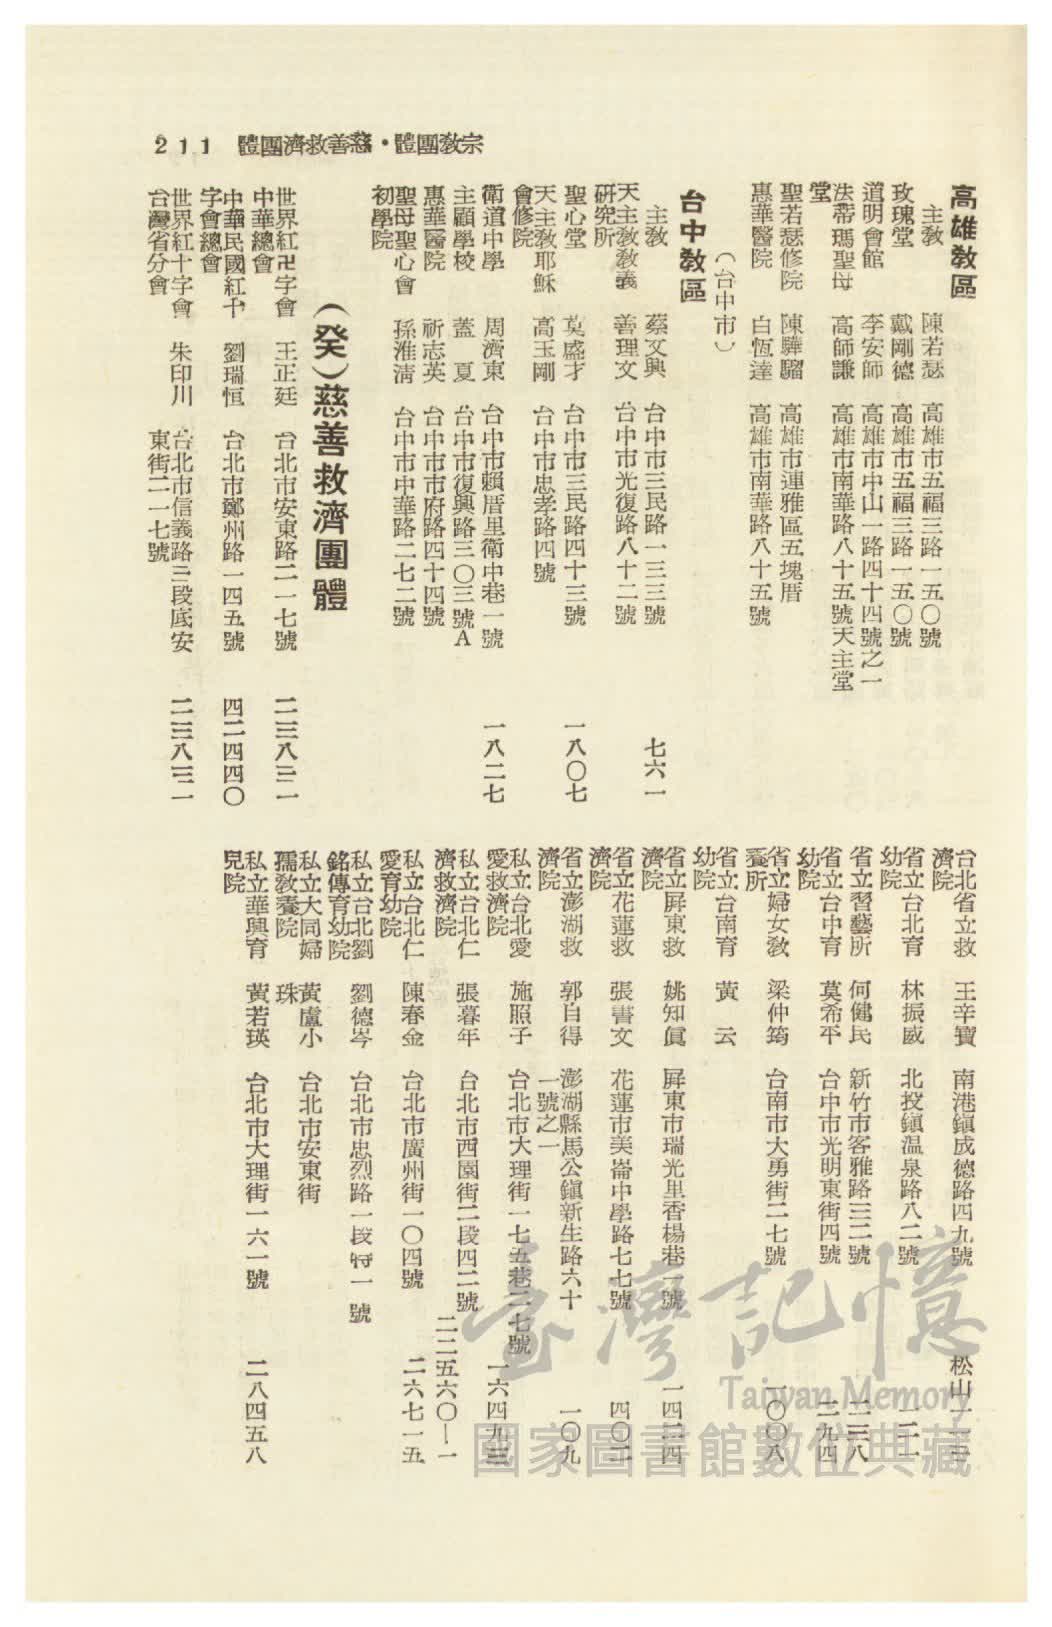 宗教團體・慈善救濟團體 211
高雄教區
主教 陳若瑟 高雄市五福三路一五〇號
玫瑰堂 戴剛德 高雄市五福三路一五〇號
道明會館 李安師 高雄市中山一路四十四號之一
法蒂瑪聖母堂 高師謙 高雄市南華路八十五號天主堂
聖若瑟修院 陳驊騮 高雄市連雅區五塊厝
惠華醫院 白恆達 高雄市南華路八十五號
台中教區
(台中市)
主教 蔡文興 台中市三民路一三三號 七六一
天主教教義研究所 善理文 台中市光復路八十二號
聖心堂 莫盛才 台中市三民路四十三號 一八〇七
天主教耶穌會修院 高玉剛 台中市忠孝路四號
衛道中學 周濟東 台中市賴厝里衛中巷一號 一八二七
主顧學校 蓋夏 台中市復興路三〇三號A
惠華醫院 祈志英 台中市市府路四十四號
聖母聖心會初學院 孫淮淸 台中市中華路二七二號
(癸)慈善救濟團體
世界紅卍字會中華總會 王正廷 台北市安東路二一七號 二三八三一
中華民國紅十字會總會 劉瑞恒 台北市鄭州路一四五號 四二四四〇
世界紅十字會台灣省分會 朱印川 台北市信義路三段底安東街二一七號 二三八三一
台北省立救濟院 王辛寶 南港鎭成德路四九號 松山
省立台北育幼院 林振威 北投鎭温泉路八二號
省立習藝所 何健民 新竹市客雅路三二號
省立台中育幼院 莫希平 台中市光明東街四號 二九四
省立婦女教養所 梁仲筠 台南市大勇街二七號 一〇〇八
省立台南育幼院 黃云
省立屏東救濟院 姚知眞 屏東市瑞光里香楊巷一號 一四二四
省立花蓮救濟院 張書文 花蓮市美崙中學路七七號 四〇二
省立澎湖救濟院 郭自得 澎湖縣馬公鎭新生路六十一號之一 一〇九
私立台北愛愛救濟院 施照子 台北市大理街一七五巷二七號 一六四九三
私立台北仁濟救濟院 張暮年 台北市西園街二段四二號 二二五六〇—一
私立台北仁愛育幼院 陳春金 台北市廣州街一〇四號 二六七一五
私立台北劉銘傳育幼院 劉德岑 台北市忠烈路一段特一號
私立大同婦孺教養院 黃盧小珠 台北市安東街
私立華興育兒院 黃若瑛 台北市大理街一六一號 二八四五八
臺灣記憶
Taiwan Memory
國家圖書館數位典藏